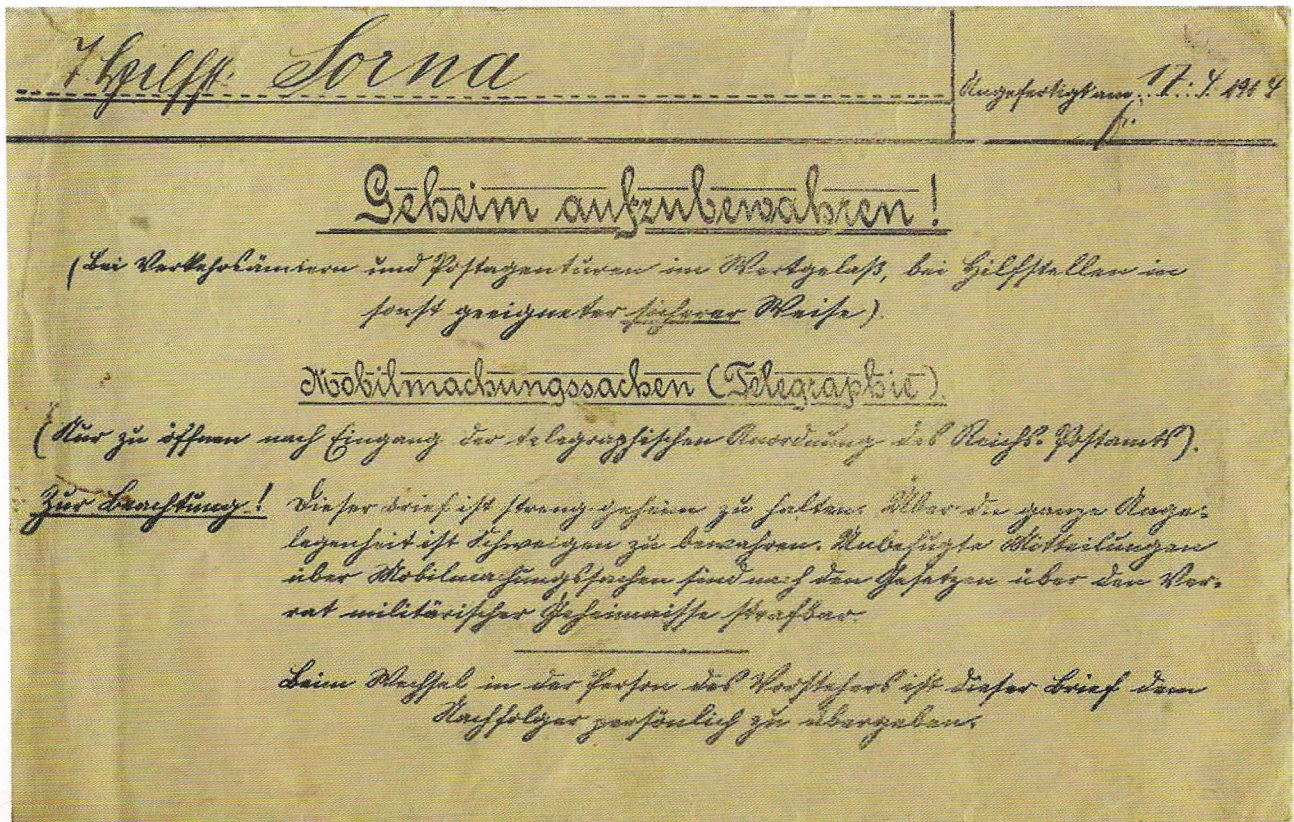 Hilfst. Sorna
Angefertigt am 17. 4. 1914
Geheim aufzubewahren!
(bei Verkehrsämtern und Postagenturen im Wertgelaß, bei Hilfstellen in
sonst geeigneter sicherer Weise).
Mobilmachungssachen (Telegraphie).
(Nur zu öffnen nach Eingang der telegraphischen Anordnung des Reichs-Postamts).
Zur Beachtung! Dieser Brief ist streng geheim zu halten. Über die ganze Ange-
legenheit ist Schweigen zu bewahren. Unbefugte Mitteilungen
über Mobilmachungssachen sind nach den Gesetzen über den Ver-
rat militärischer Geheimnisse strafbar.
Beim Wechsel in der Person des Vorstehers ist dieser Brief dem
Nachfolger persönlich zu übergeben.